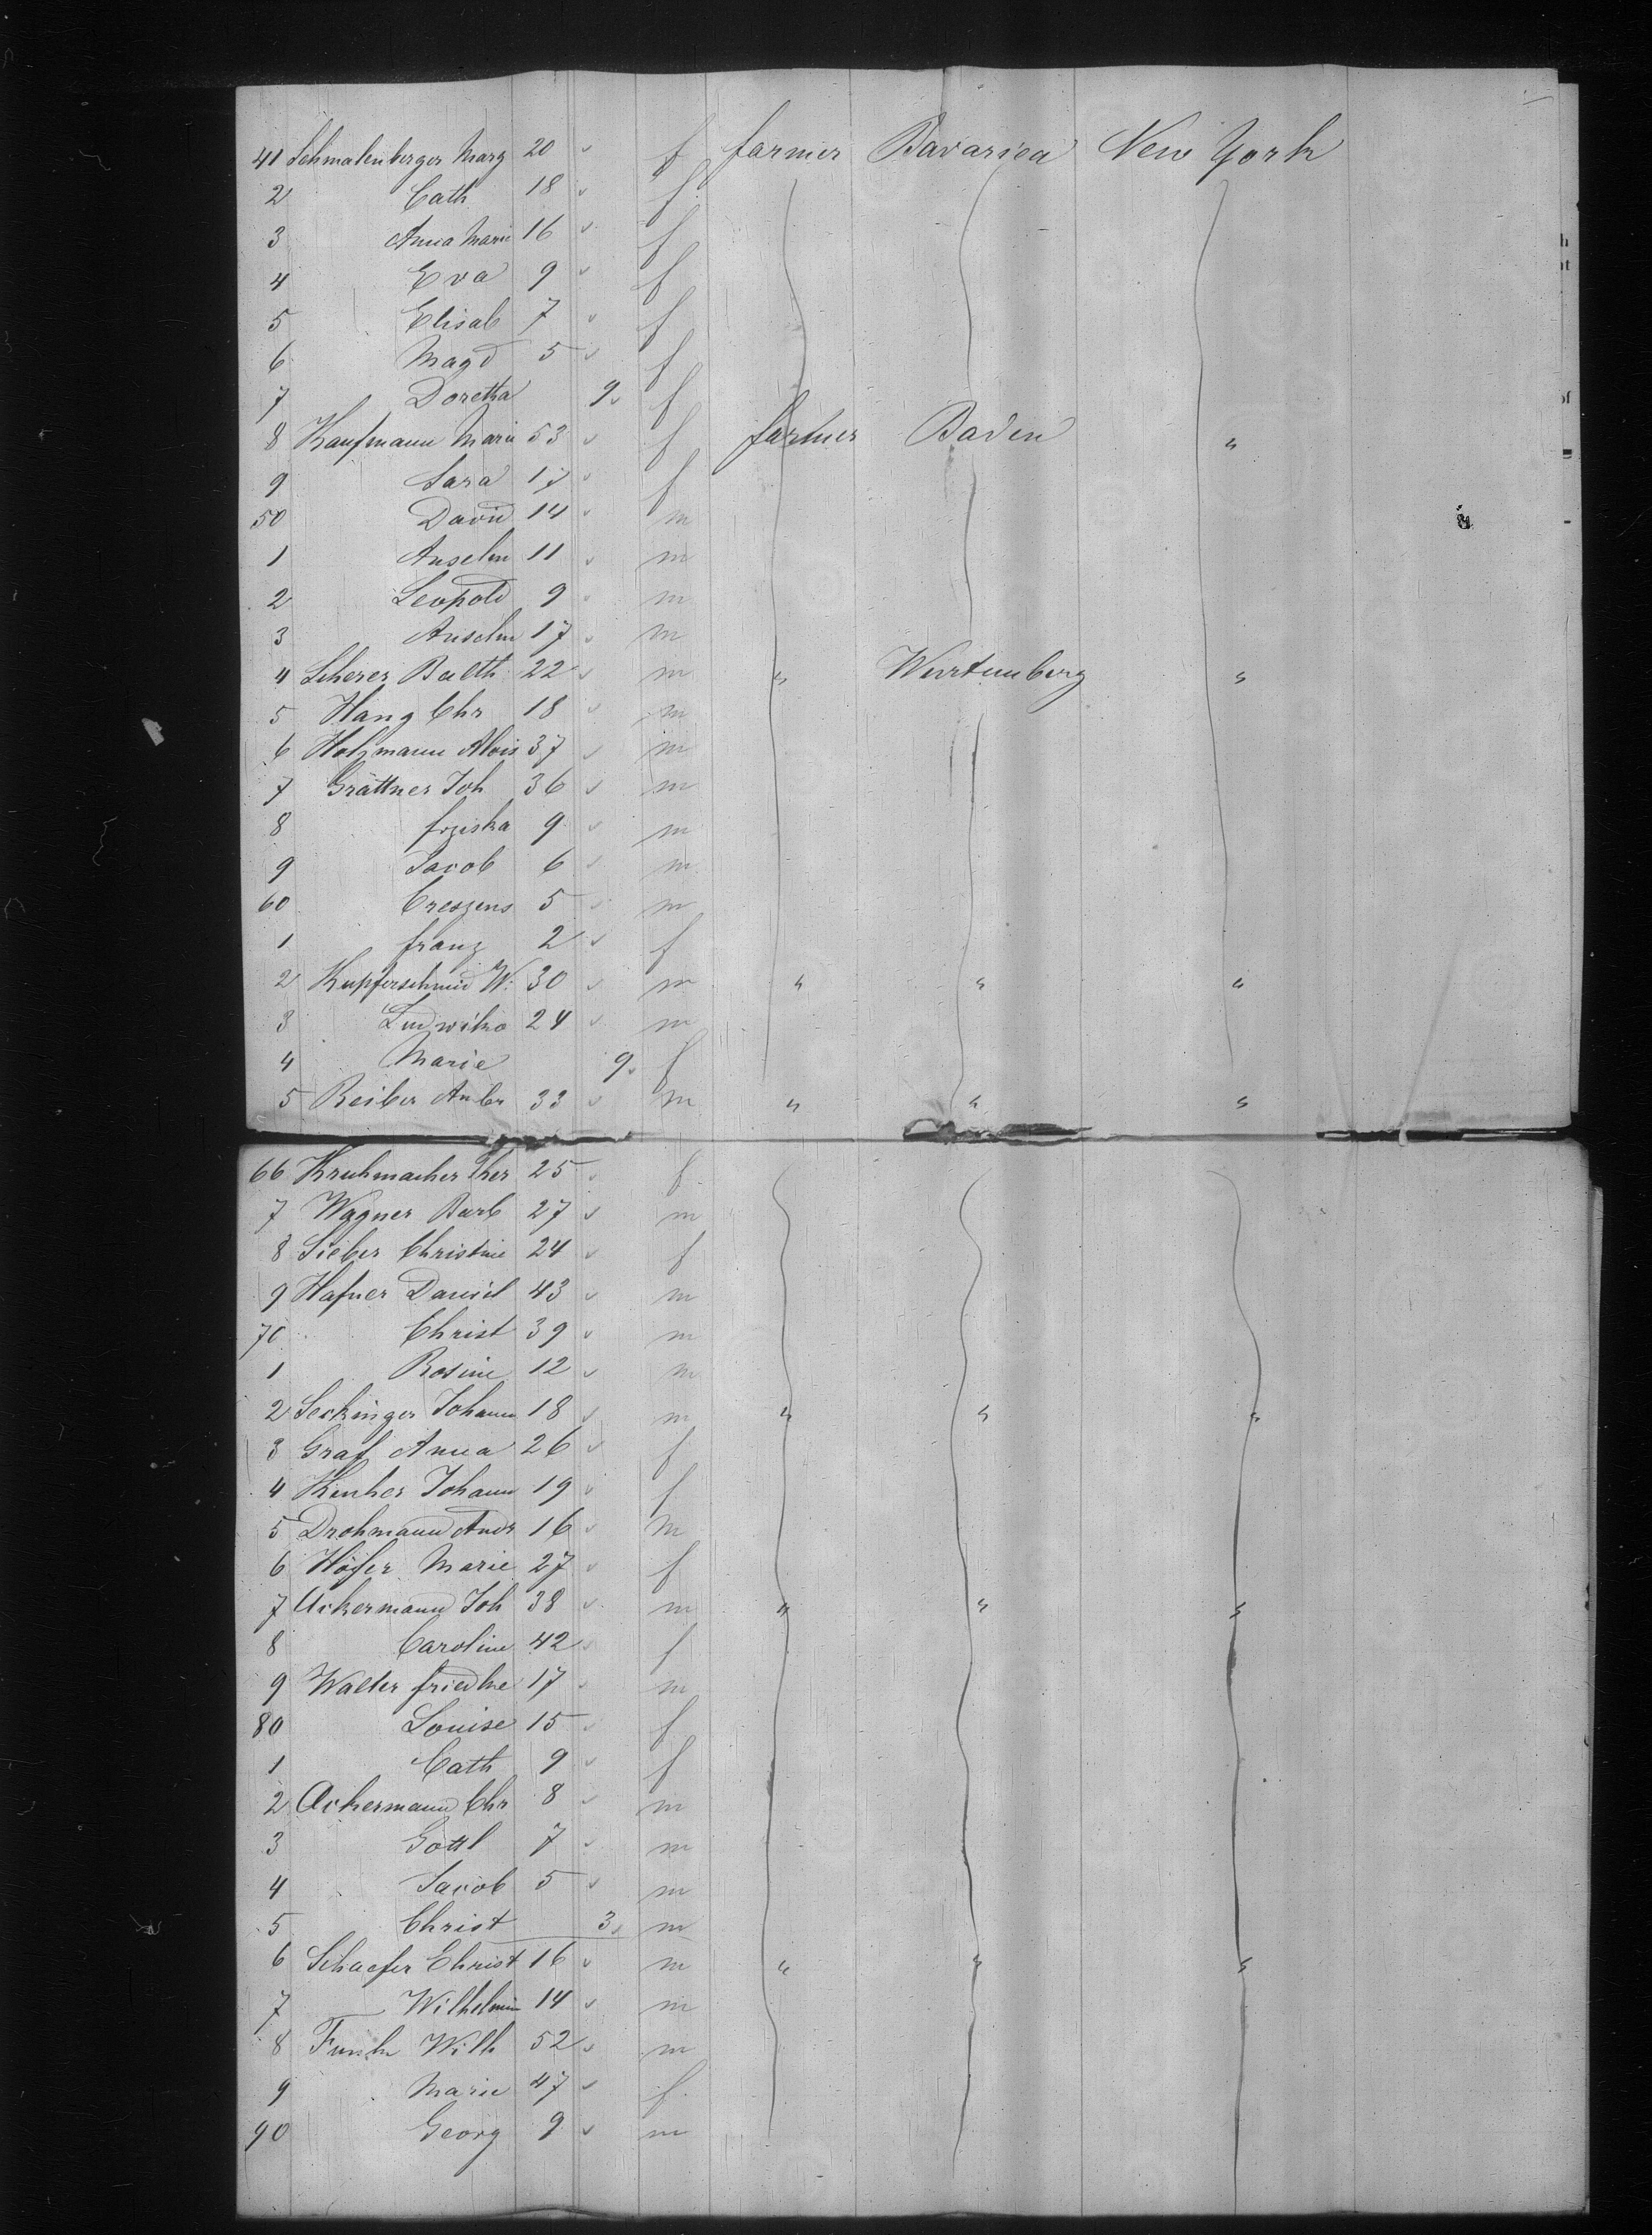 41 Schmalenberger Marg 20 f farmer Bavariea New York
2 Cath 18 f
3 Anna Marie 16 f
4 Eva 9 f
5 Elisab 7 f
6 Magd 5 f
7 Doretha 9 f
8 Kaufmann Marie 53 f farmer Baden "
9 Sara 17 f
50 David 14 m
1 Anselm 11 m
2 Leopold 9 m
3 Anselm 17 m
4 Scherer Balth 22 m " Wurtemberg "
5 Hang Chr 18 m
6 Holzmann Alois 37 m
7 Grättner Joh 36 m
8 frziska 9 m
9 Jacob 6 m
60 Creszens 5 m
1 franz 2 f
2 Kupferschmid W. 30 m " " "
3 Ludwika 24 m
4 Marie 9 f
5 Reiber Anbr 33 m " " "
66 Kruhmacher Ther 25 f
7 Wagner Barb 27 m
8 Sieber Christine 24 f
9 Hafner Daniel 43 m
70 Christ 39 m
1 Rosine 12 m
2 Seckinger Johann 18 m " " "
3 Graf Anna 26 f
4 Johann 19 f
5 Drohmann Andr 16 m
6 Höfer Marie 27 f
7 Ackermann Joh 38 m " " "
8 Caroline 42 f
9 Walter friedke 17 m
80 Louise 15 f
1 Cath 9 f
2 Ackermann Chr 8 m
3 Gottl 7 m
4 Jacob 5 m
5 Christ 3 m
6 Schaefer Christ 16 m " " "
7 Wilhelmin 14 m
8 Funk Wilh 52 m
9 Marie 47 f
90 Georg 9 m